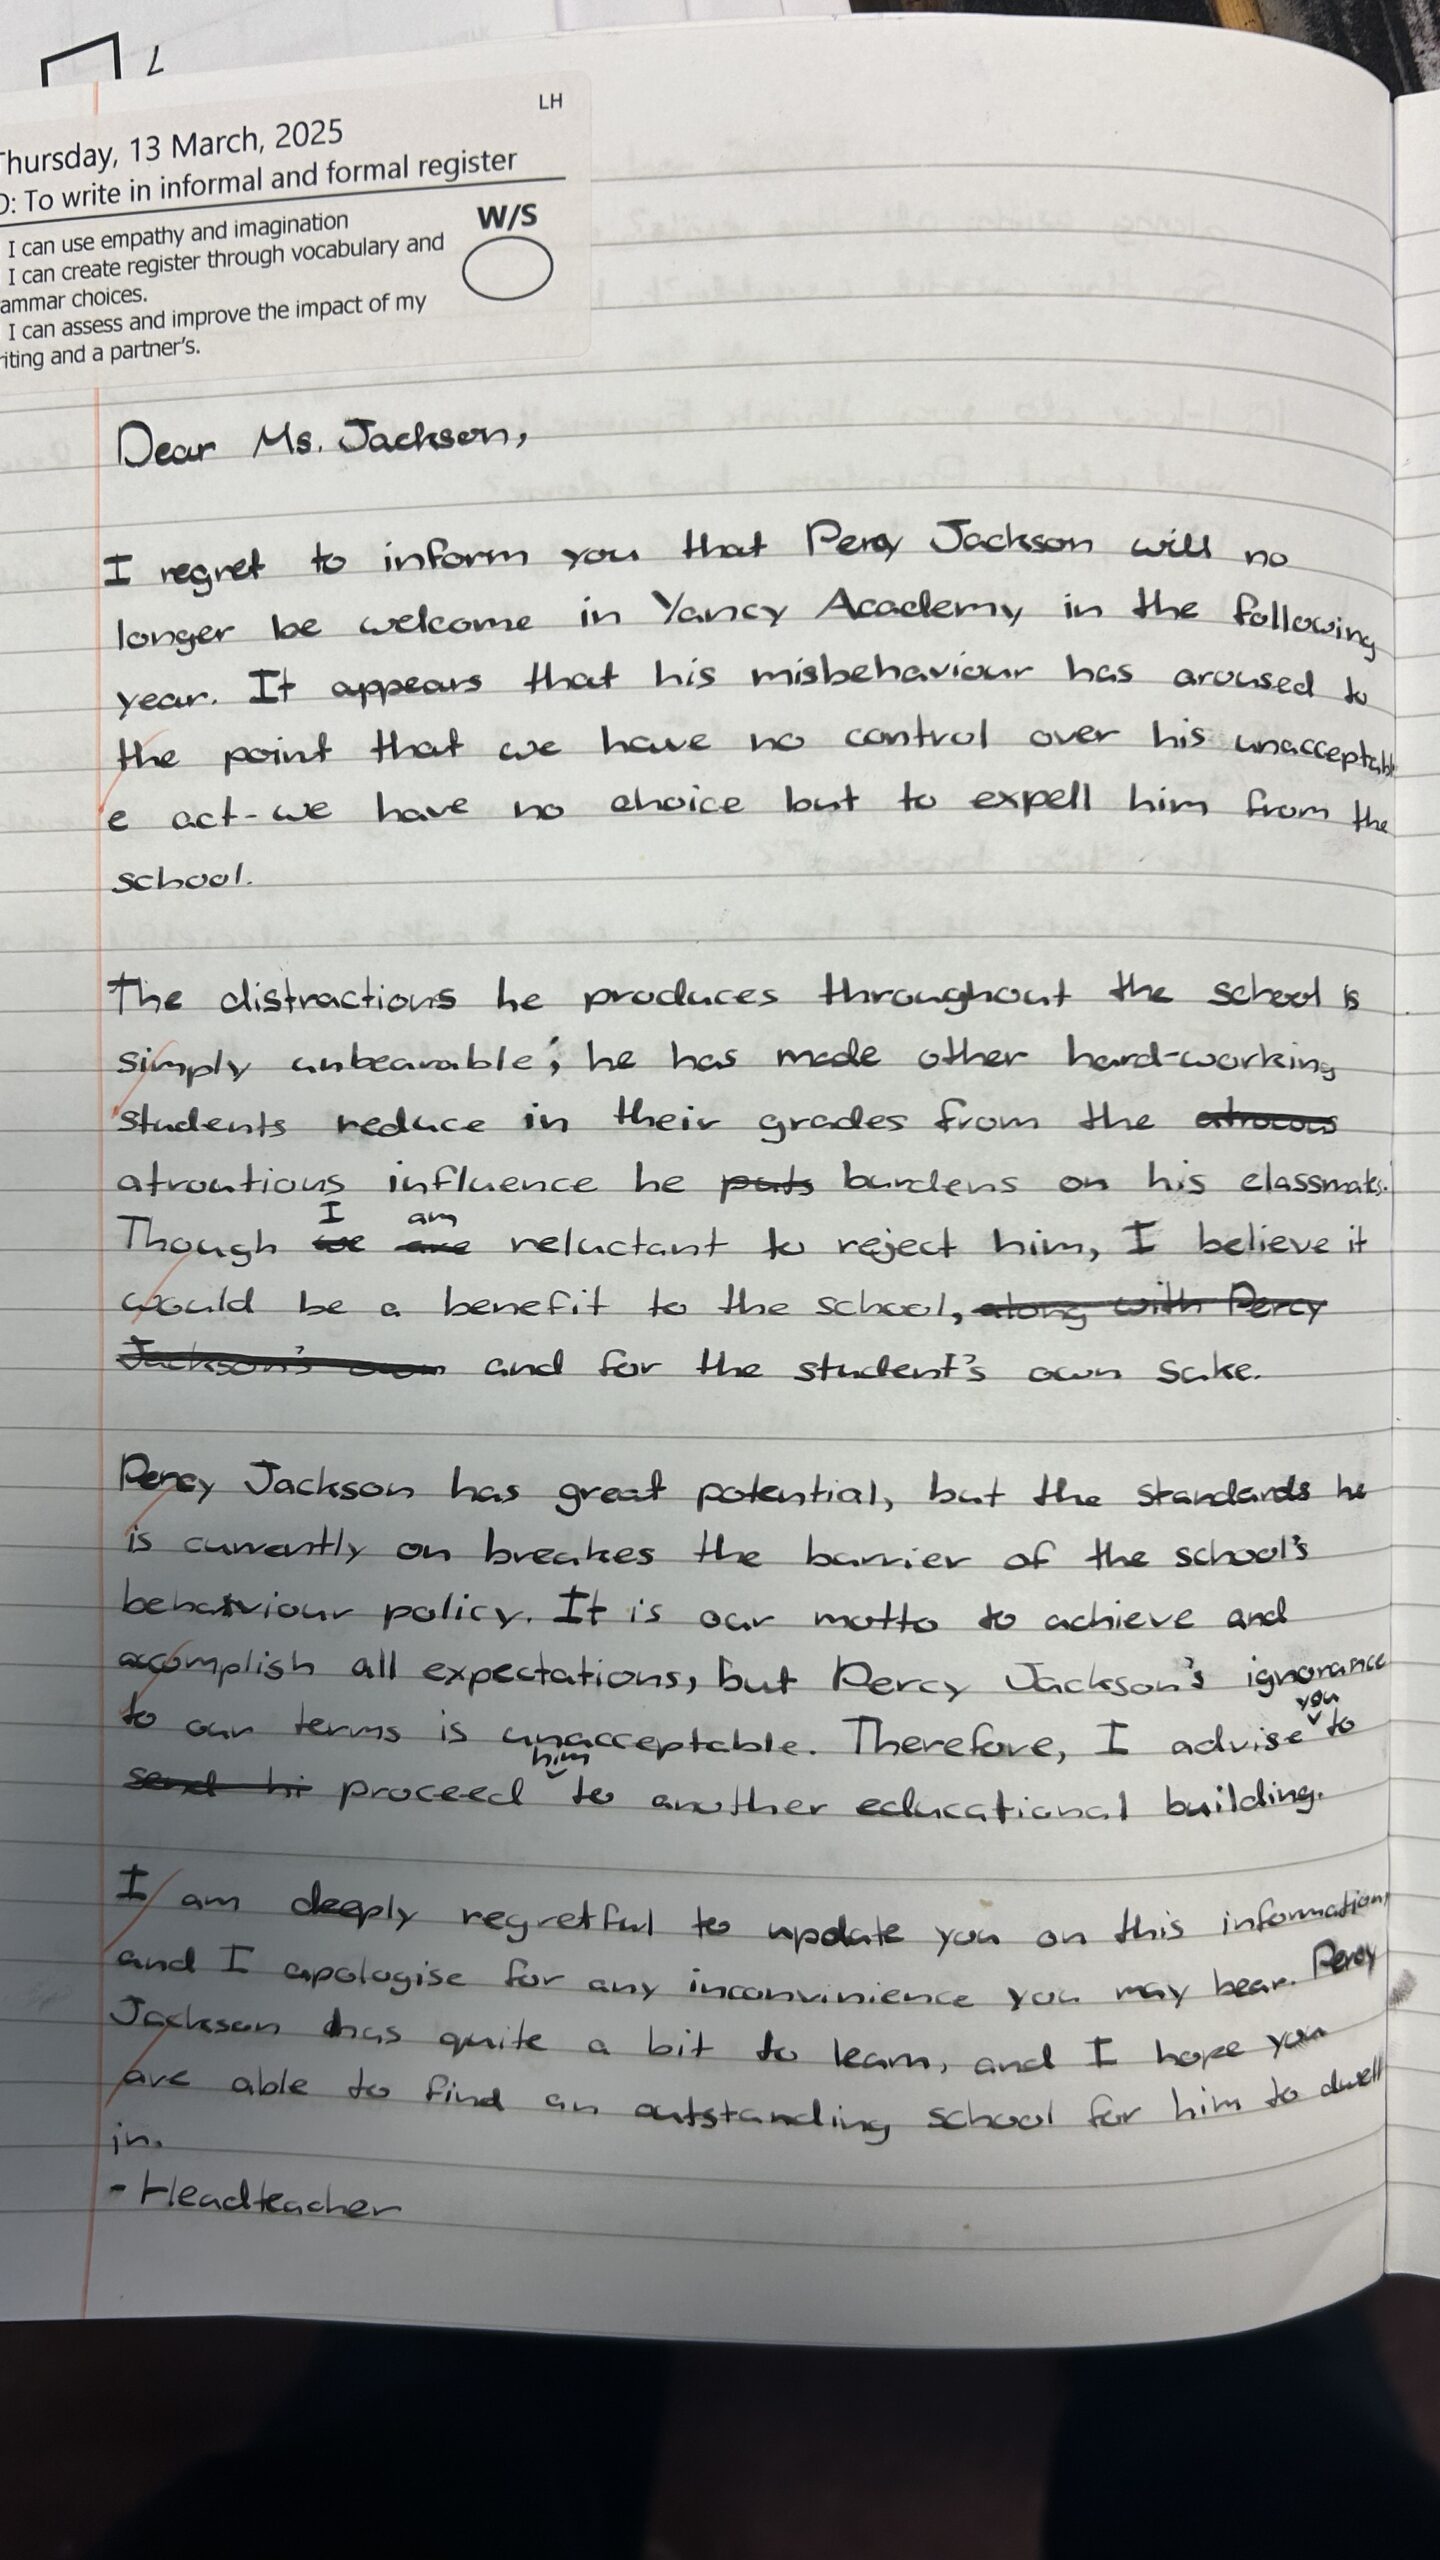 LH
Thursday, 13 March, 2025
O: To write in informal and formal register
W/S
I can use empathy and imagination
I can create register through vocabulary and
ammar choices.
I can assess and improve the impact of my
riting and a partner's.
Dear Ms. Jackson,
I regret to inform you that Percy Jackson will no
longer be welcome in Yancy Academy in the following
year. It appears that his misbehaviour has aroused to
the point that we have no control over his unacceptabl
e act-we have no choice but to expell him from the
school.
The distractions he produces throughout the school is
simply unbearable; he has made other hard-working
students reduce in their grades from the atrocous
atroutious influence he puts burdens on his classmates.
I am
Though we are reluctant to reject him, I believe it
would be a benefit to the school, along with Percy
Jackson's own and for the student's own sake.
Percy Jackson has great potential, but the standards he
is currently on breakes the barrier of the school's
behaviour policy. It is our motto to achieve and
acomplish all expectations, but Percy Jackson's ignorance
you
to our terms is unacceptable. Therefore, I advise to
him
send hi proceed to another educational building.
I am deeply regretful to update you on this information,
and I apologise for any inconvinience you may bear. Percy
Jackson has quite a bit to learn, and I hope you
are able to find an outstanding school for him to dwell
in.
- Headteacher